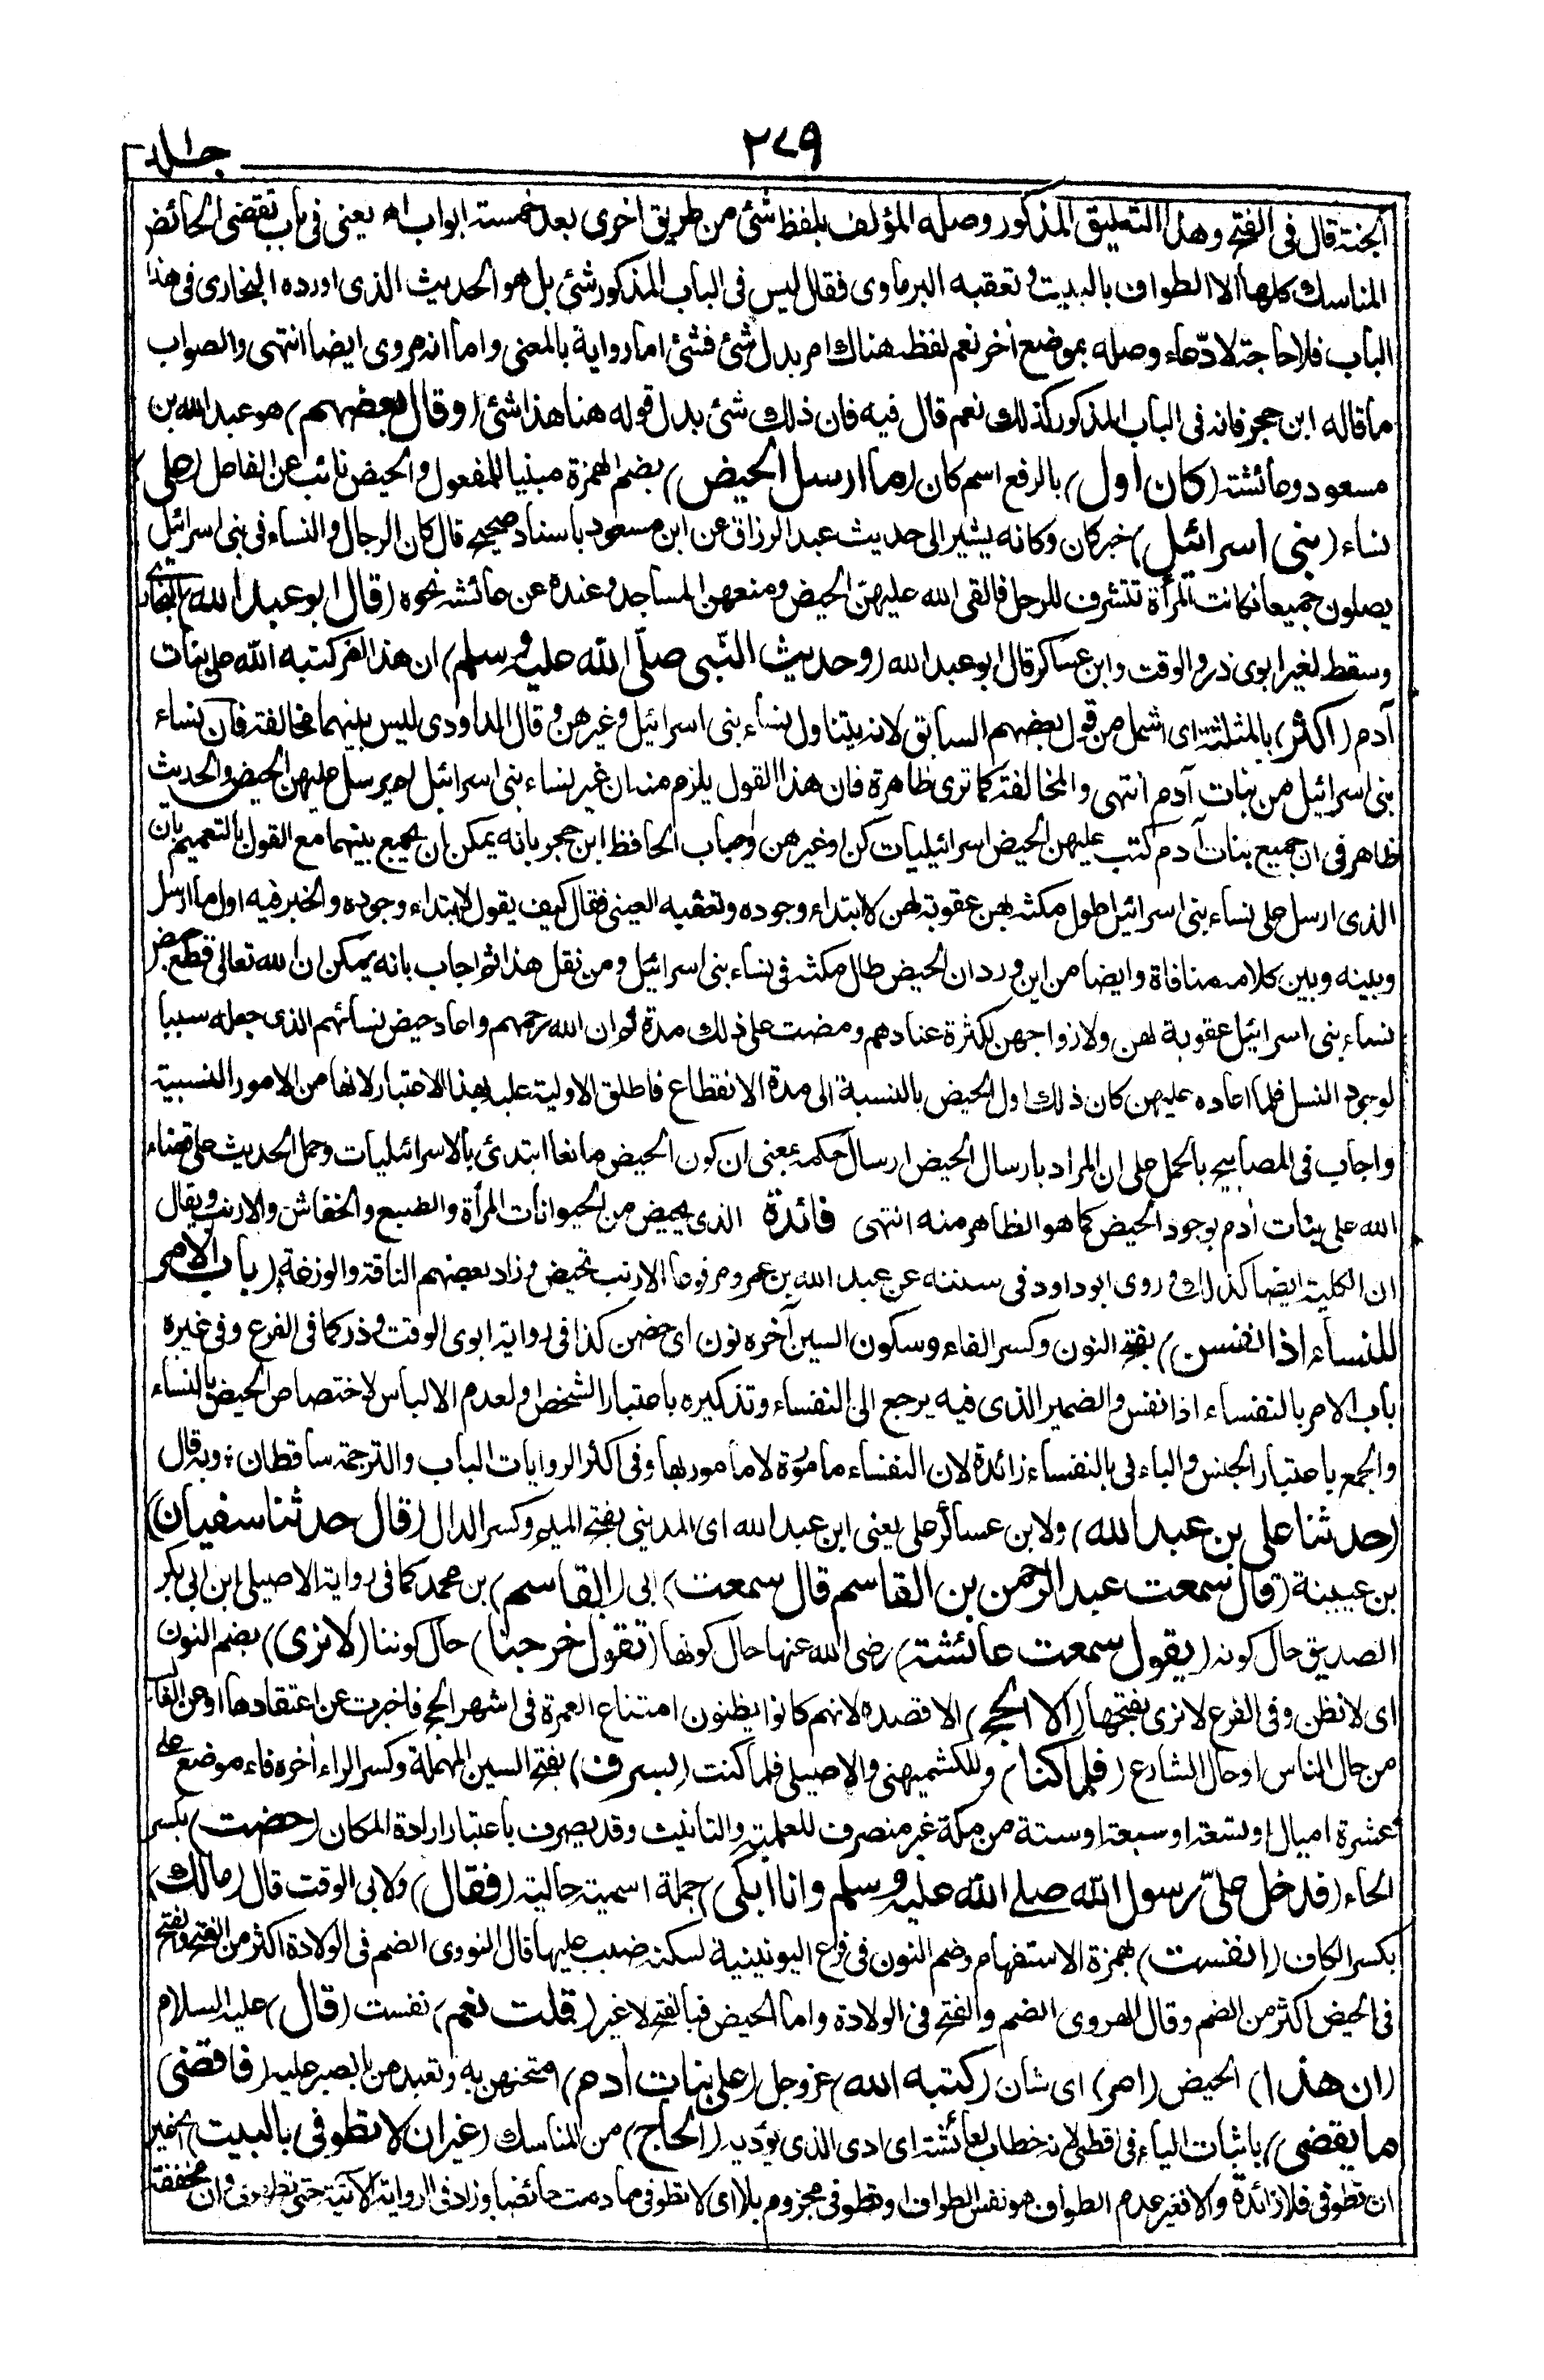 ٢٧٩
جلد ١
الجنة قال فى الفتح وهذا التعليق المذكور وصله المؤلف بلفظ شئ من طريق اخرى بعد خمسة ابواب اه يعنى فى باب تقضى الحائض
المناسك كلها الا الطواف بالبيت وتعقبه البرماوى فقال ليس فى الباب المذكور شئ بل هو الحديث الذى اورده البخارى فى هذا
الباب فلا حاجة لادعاء وصله بموضع اخر نعم لفظه هناك امر بدل شئ فشئ اما رواية بالمعنى واما انه مروى ايضا انتهى والصواب
ما قاله ابن حجر فانه فى الباب المذكور كذلك نعم قال فيه فان ذلك شئ بدل قوله هنا هذا شئ (وقال بعضهم) هو عبد الله بن
مسعود وعائشة (كان اول) بالرفع اسم كان (ما ارسل الحيض) بضم الهمزة مبنيا للمفعول والحيض نائب عن الفاعل (على)
نساء (بنى اسرائيل) خبر كان وكانه يشير الى حديث عبد الرزاق عن ابن مسعود باسناد صحيح قال كان الرجال والنساء فى بنى اسرائيل
يصلون جميعا فكانت المرأة تتشرف للرجل فالقى الله عليهن الحيض ومنعهن المساجد وعنده عن عائشة نحوه (قال ابو عبد الله) البخارى
وسقط لغير ابوى ذر والوقت وابن عساكر قال ابو عبد الله (وحديث النبى صلى الله عليه وسلم) ان هذا امر كتبه الله على بنات
آدم (اكثر) بالمثلثة اى اشمل من قول بعضهم السابق لانه يتناول نساء بنى اسرائيل وغيرهن وقال الداودى ليس بينهما مخالفة فان نساء
بنى اسرائيل من بنات آدم انتهى والمخالفة كما ترى ظاهرة فان هذا القول يلزم منه ان غير نساء بنى اسرائيل لم يرسل عليهن الحيض والحديث
ظاهر فى ان جميع بنات آدم كتب عليهن الحيض اسرائيليات كن او غيرهن واجاب الحافظ ابن حجر بانه يمكن ان يجمع بينهما مع القول بالتعميم بان
الذى ارسل على نساء بنى اسرائيل طول مكثه بهن عقوبة لهن لا ابتداء وجوده وتعقبه العينى فقال كيف يقول لا ابتداء وجوده والخبر فيه اول ما ارسل
وبينه وبين كلامه منافاة وايضا من اين ورد ان الحيض طال مكثه فى نساء بنى اسرائيل ومن نقل هذا ثم اجاب بانه يمكن ان الله تعالى قطع حيض
نساء بنى اسرائيل عقوبة لهن ولازواجهن لكثرة عنادهم ومضت على ذلك مدة ثم ان الله رحمهم واعاد حيض نسائهم الذى جعله سببا
لوجود النسل فلما اعاده عليهن كان ذلك اول الحيض بالنسبة الى مدة الانقطاع فاطلق الاولية عليه بهذا الاعتبار لانها من الامور النسبية
واجاب فى المصابيح بالحمل على ان المراد بارسال الحيض ارسال حكمه بمعنى ان كون الحيض مانعا ابتدئ بالاسرائيليات وحمل الحديث على قضاء
الله على بنات ادم بوجود الحيض كما هو الظاهر منه انتهى فائدة الذى يحيض من الحيوانات المرأة والضبع والخفاش والارنب ويقال
ان الكلبة ايضا كذلك وروى ابو داود فى سننه عن عبد الله بن عمرو مرفوعا الارنب تحيض وزاد بعضهم الناقة والوزغة (باب الامر
للنساء اذا نفسن) بفتح النون وكسر الفاء وسكون السين آخره نون اى حضن كذا فى رواية ابوى الوقت وذر كما فى الفرع وفى غيره
باب الامر بالنفساء اذا نفس والضمير الذى فيه يرجع الى النفساء وتذكيره باعتبار الشخص ولعدم الالباس لاختصاص الحيض بالنساء
والجمع باعتبار الجنس والباء فى بالنفساء زائدة لان النفساء مأمورة لا مأمور بها وفى اكثر الروايات الباب والترجمة ساقطان وبه قال
(حدثنا على بن عبد الله) ولابن عساكر على يعنى ابن عبد الله اى المدينى بفتح الميم وكسر الدال (قال حدثنا سفيان)
بن عيينة (قال سمعت عبد الرحمن بن القاسم قال سمعت) ابى (القاسم) بن محمد كما فى رواية الاصيلى ابن ابى بكر
الصديق حال كونه (يقول سمعت عائشة) رضى الله عنها حال كونها (تقول خرجنا) حال كوننا (لا نرى) بضم النون
اى لا نظن وفى الفرع لا نرى بفتحها (الا الحج) الا قصده لانهم كانوا يظنون امتناع العمرة فى اشهر الحج فاخبرت عن اعتقادها او عن الغالب
من حال الناس او حال الشارع (فلما كنا) وللكشميهنى والاصيلى فلما كنت (بسرف) بفتح السين المهملة وكسر الراء اخره فاء موضع على
عشرة اميال او تسعة او سبعة او ستة من مكة غير منصرف للعلمية والتانيث وقد يصرف باعتبار ارادة المكان (حضت) بكسر
الحاء (فدخل علىّ رسول الله صلى الله عليه وسلم وانا ابكى) جملة اسمية حالية (فقال) ولابى الوقت قال (مالك)
بكسر الكاف (انفست) بهمزة الاستفهام وضم النون فى فرع اليونينية لكنه ضبب عليها قال النووى الضم فى الولادة اكثر من الفتح والفتح
فى الحيض اكثر من الضم وقال الهروى الضم والفتح فى الولادة واما الحيض فبالفتح لا غير (قلت نعم) نفست (قال) عليه السلام
(ان هذا) الحيض (امر) اى شان (كتبه الله) عز وجل (على بنات ادم) امتحنهن به وتعبدهن بالصبر عليه (فاقضى
ما يقضى) باثبات الياء فى اقضى لانه خطاب لعائشة اى ادى الذى يؤديه (الحاج) من المناسك (غير ان لا تطوفى بالبيت) اى غير
ان تطوفى فلا زائدة والا فغير عدم الطواف هو نفس الطواف او تطوفى مجزوم بلا اى لا تطوفى ما دمت حائضا وزاد فى الرواية الآتية حتى تطهرى وان مخففة